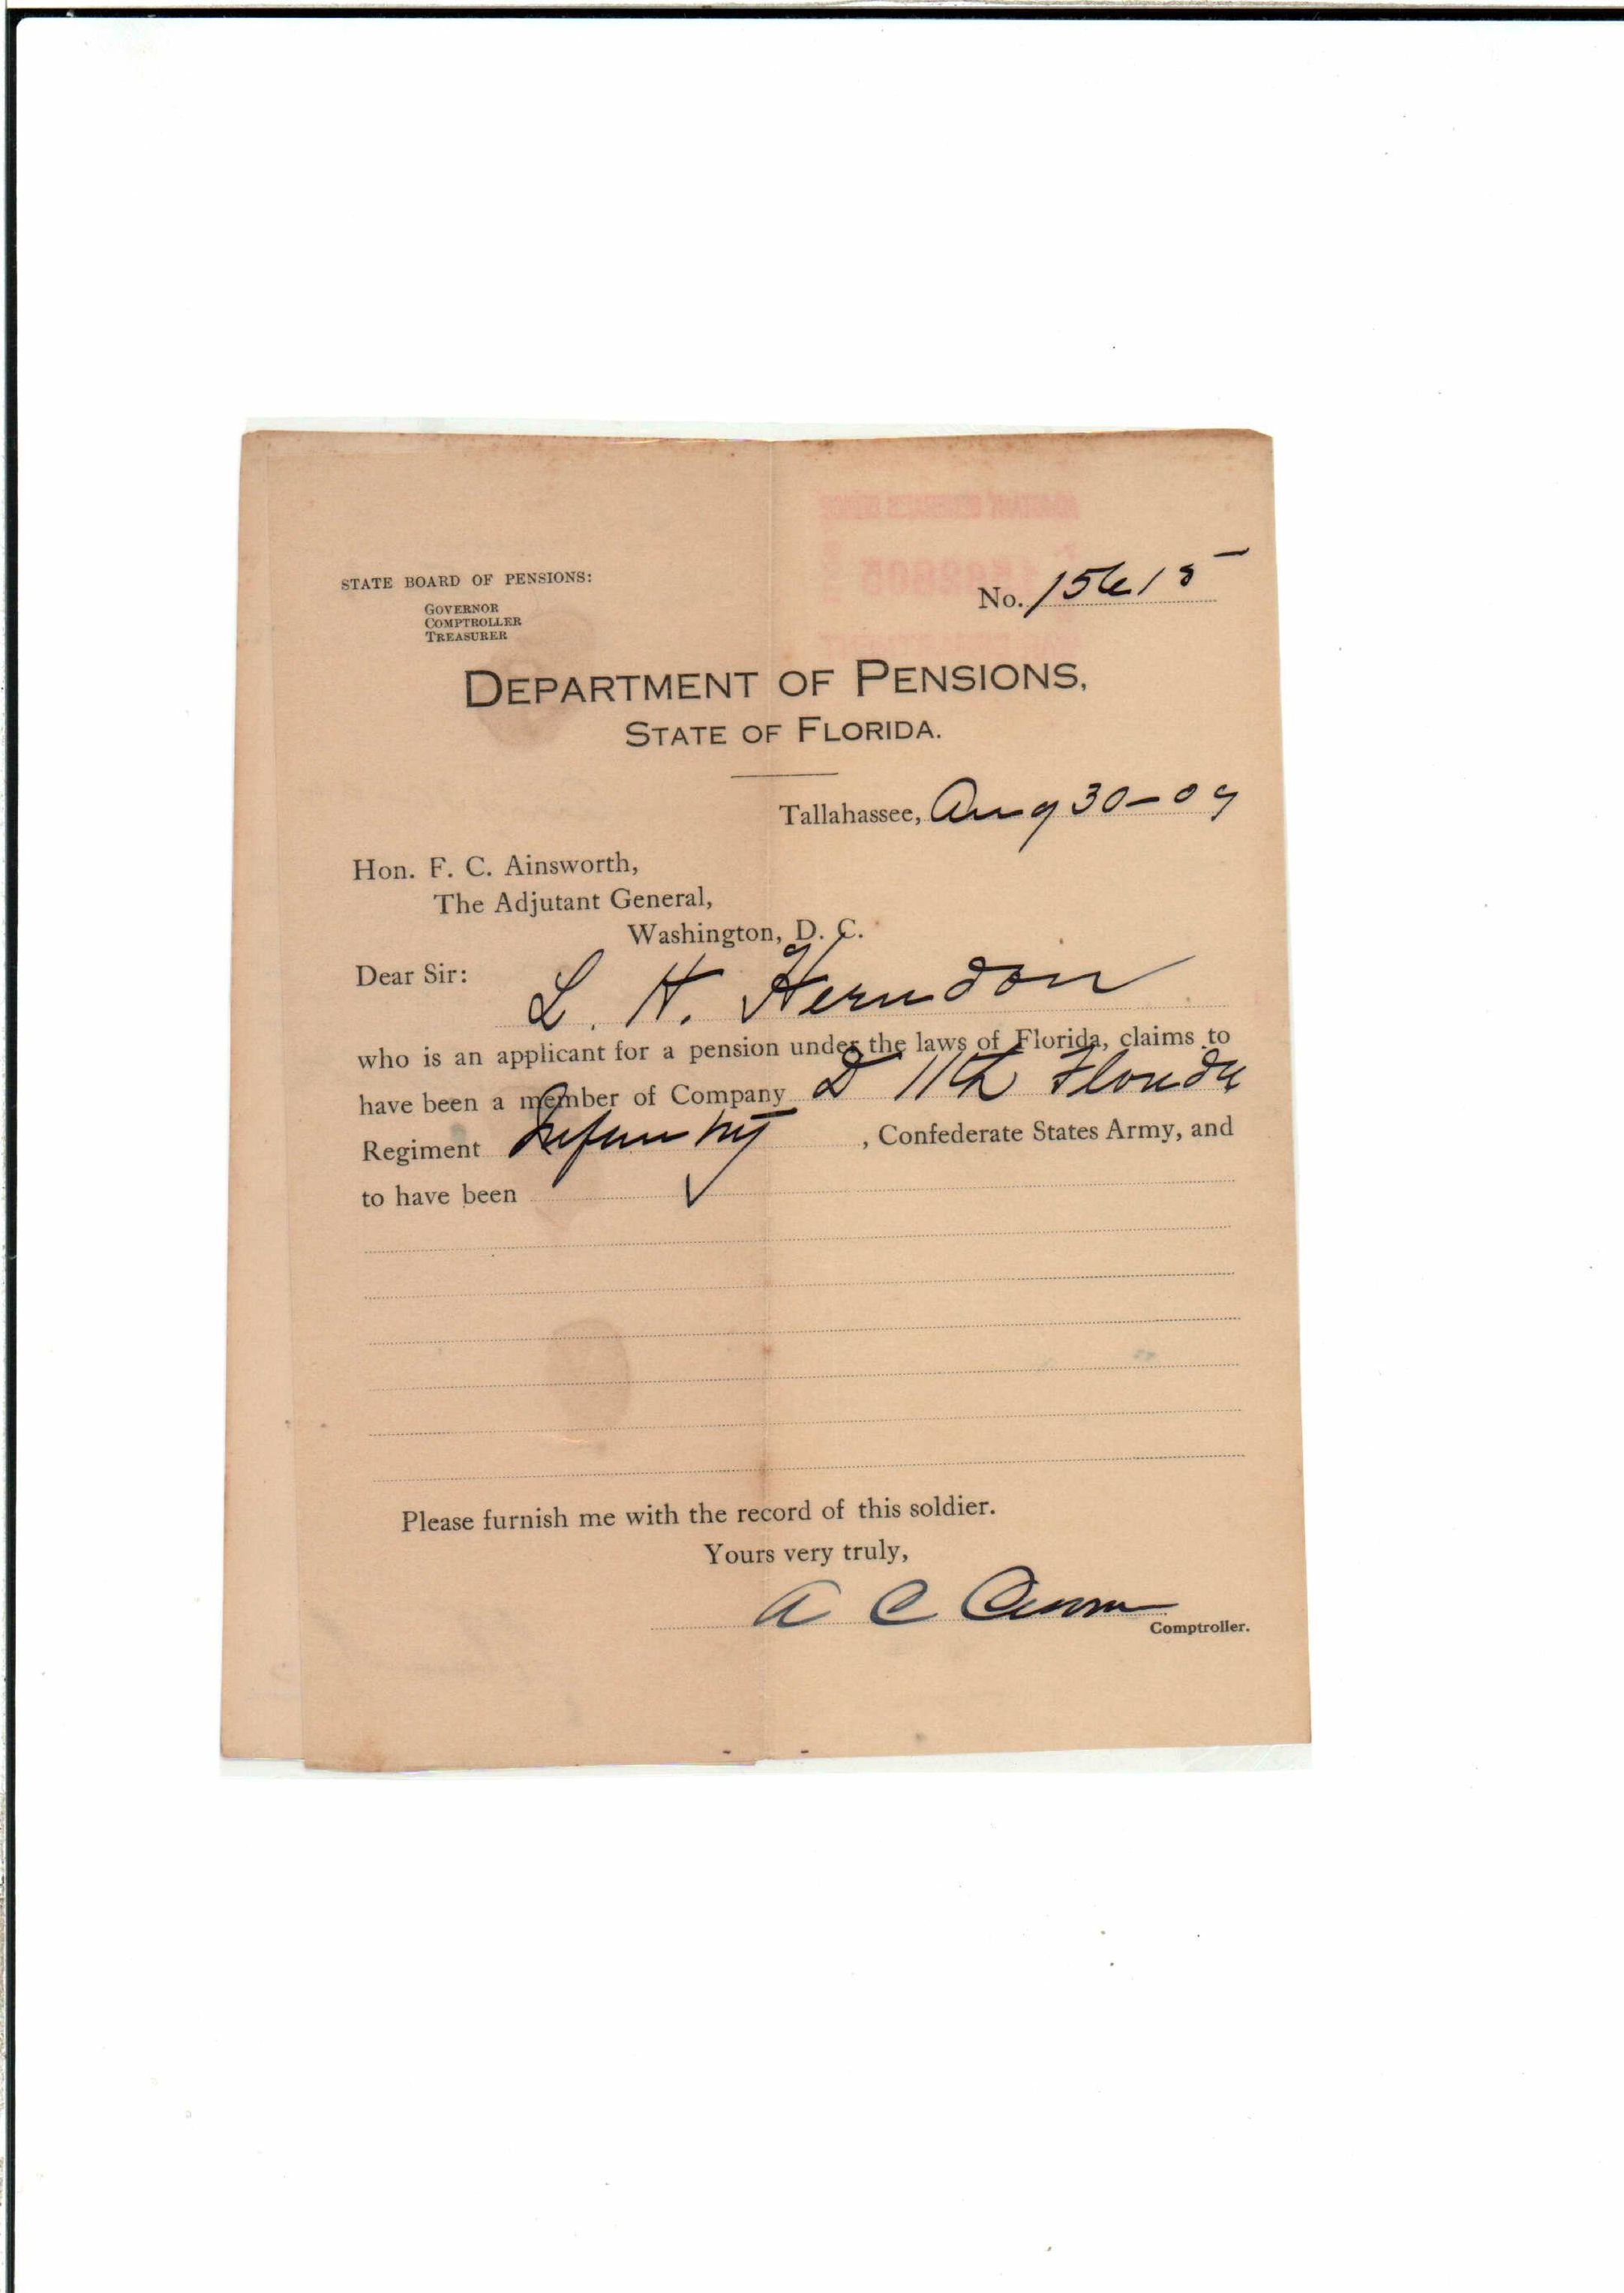 STATE BOARD OF PENSIONS:
GOVERNOR
COMPTROLLER
TREASURER
No. 15615
DEPARTMENT OF PENSIONS,
STATE OF FLORIDA.
Tallahassee, Aug 30-09
Hon. F. C. Ainsworth,
The Adjutant General,
Washington, D. C.
Dear Sir:
L. H. Herndon
who is an applicant for a pension under the laws of Florida, claims to
have been a member of Company D 11th Florida
Regiment Infantry , Confederate States Army, and
to have been
Please furnish me with the record of this soldier.
Yours very truly,
A C Croom
Comptroller.